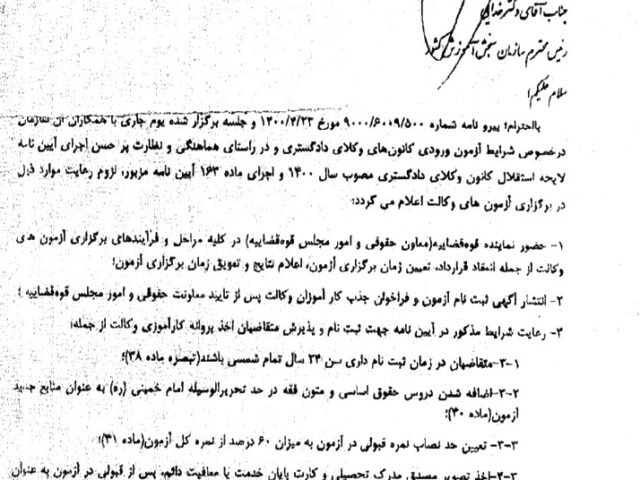 جناب آقای دکتر خدایی
رئیس محترم سازمان سنجش آموزش کشور
سلام علیکم؛
بااحترام؛ پیرو نامه شماره ۹۰۰۰/۶۰۰۹/۵۰۰ مورخ ۱۴۰۰/۴/۲۳ و جلسه برگزار شده یوم جاری با همکاران آن سازمان
درخصوص شرایط آزمون ورودی کانون‌های وکلای دادگستری و در راستای هماهنگی و نظارت بر حسن اجرای آیین نامه
لایحه استقلال کانون وکلای دادگستری مصوب سال ۱۴۰۰ و اجرای ماده ۱۶۳ آیین نامه مزبور، لزوم رعایت موارد ذیل
در برگزاری آزمون های وکالت اعلام می گردد:
۱- حضور نماینده قوه‌قضاییه(معاون حقوقی و امور مجلس قوه‌قضاییه) در کلیه مراحل و فرآیندهای برگزاری آزمون های
وکالت از جمله انعقاد قرارداد، تعیین زمان برگزاری آزمون، اعلام نتایج و تعویق زمان برگزاری آزمون؛
۲- انتشار آگهی ثبت نام آزمون و فراخوان جذب کار آموزان وکالت پس از تایید معاونت حقوقی و امور مجلس قوه‌قضاییه ؛
۳- رعایت شرایط مذکور در آیین نامه جهت ثبت نام و پذیرش متقاضیان اخذ پروانه کارآموزی وکالت از جمله:
۳-۱-متقاضیان در زمان ثبت نام داری سن ۲۴ سال تمام شمسی باشند(تبصره ماده ۳۸)؛
۳-۲-اضافه شدن دروس حقوق اساسی و متون فقه در حد تحریرالوسیله امام خمینی (ره) به عنوان منابع جدید
آزمون(ماده ۴۰)؛
۳-۳- تعیین حد نصاب نمره قبولی در آزمون به میزان ۶۰ درصد از نمره کل آزمون(ماده ۴۱)؛
۳-۴-اخذ تصویر مصدق مدرک تحصیلی و کارت پایان خدمت یا معافیت دائم، پس از قبولی در آزمون به عنوان